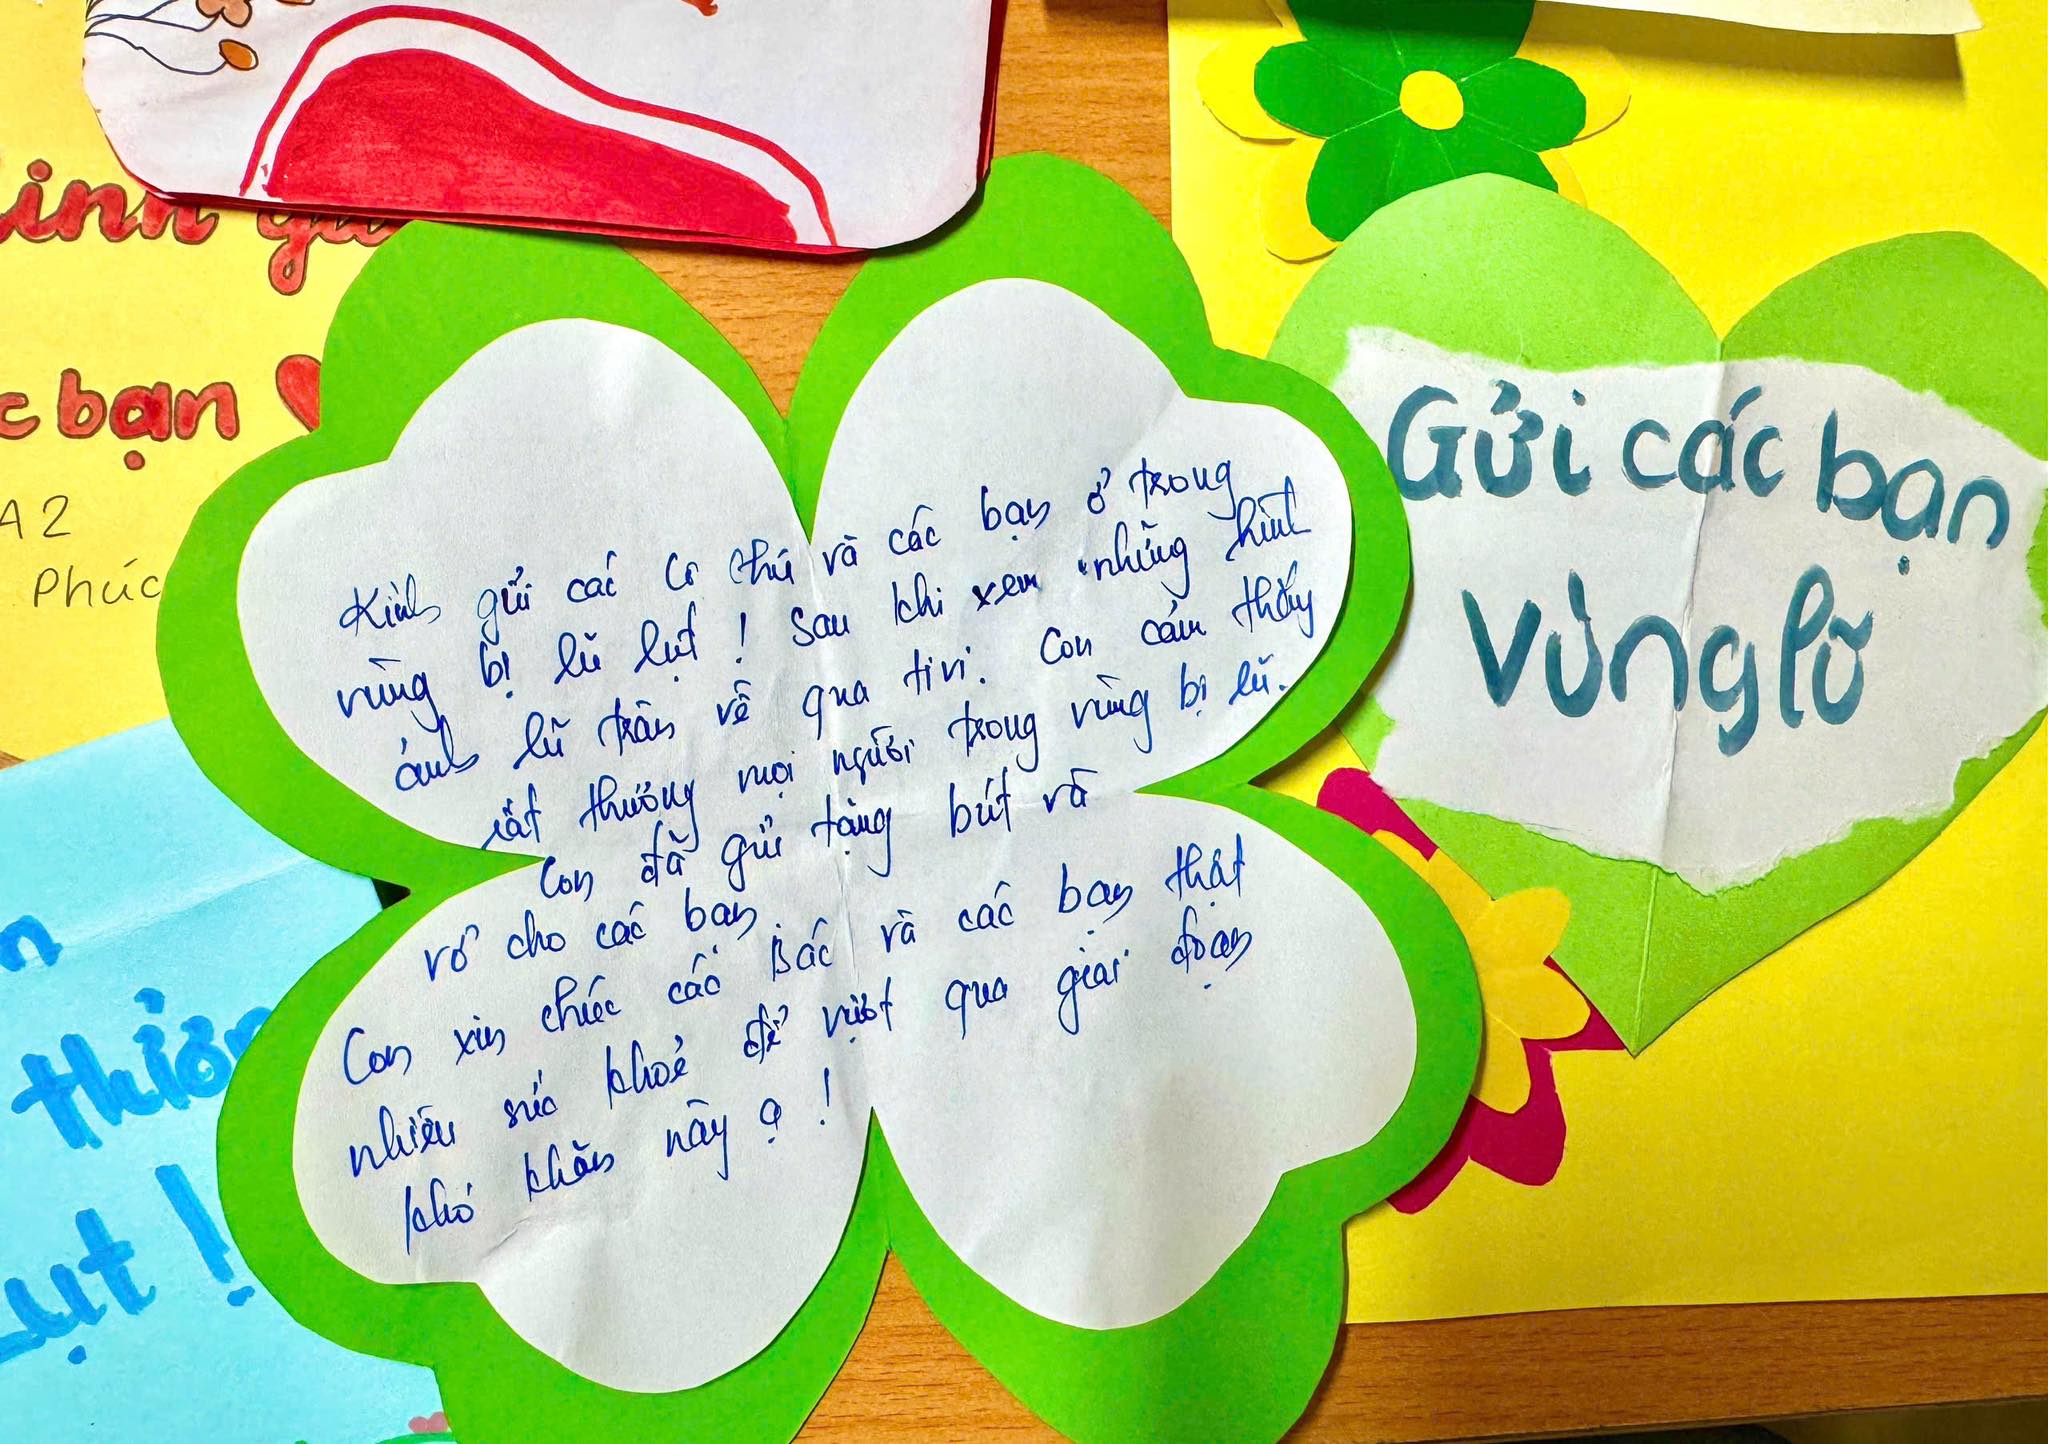 inh gử
c bạn
A2
Phúc
Kính gửi các cô chú và các bạn ở trong
vùng bị lũ lụt! Sau khi xem những hình
ảnh lũ tràn về qua tivi. Con cảm thấy
rất thương mọi người trong vùng bị lũ.
Con đã gửi tặng bút và
vở cho các bạn.
Con xin chúc các bác và các bạn thật
nhiều sức khoẻ để vượt qua giai đoạn
khó khăn này ạ!
Gửi các bạn
Vùng lũ
n
thươn
Lụt!